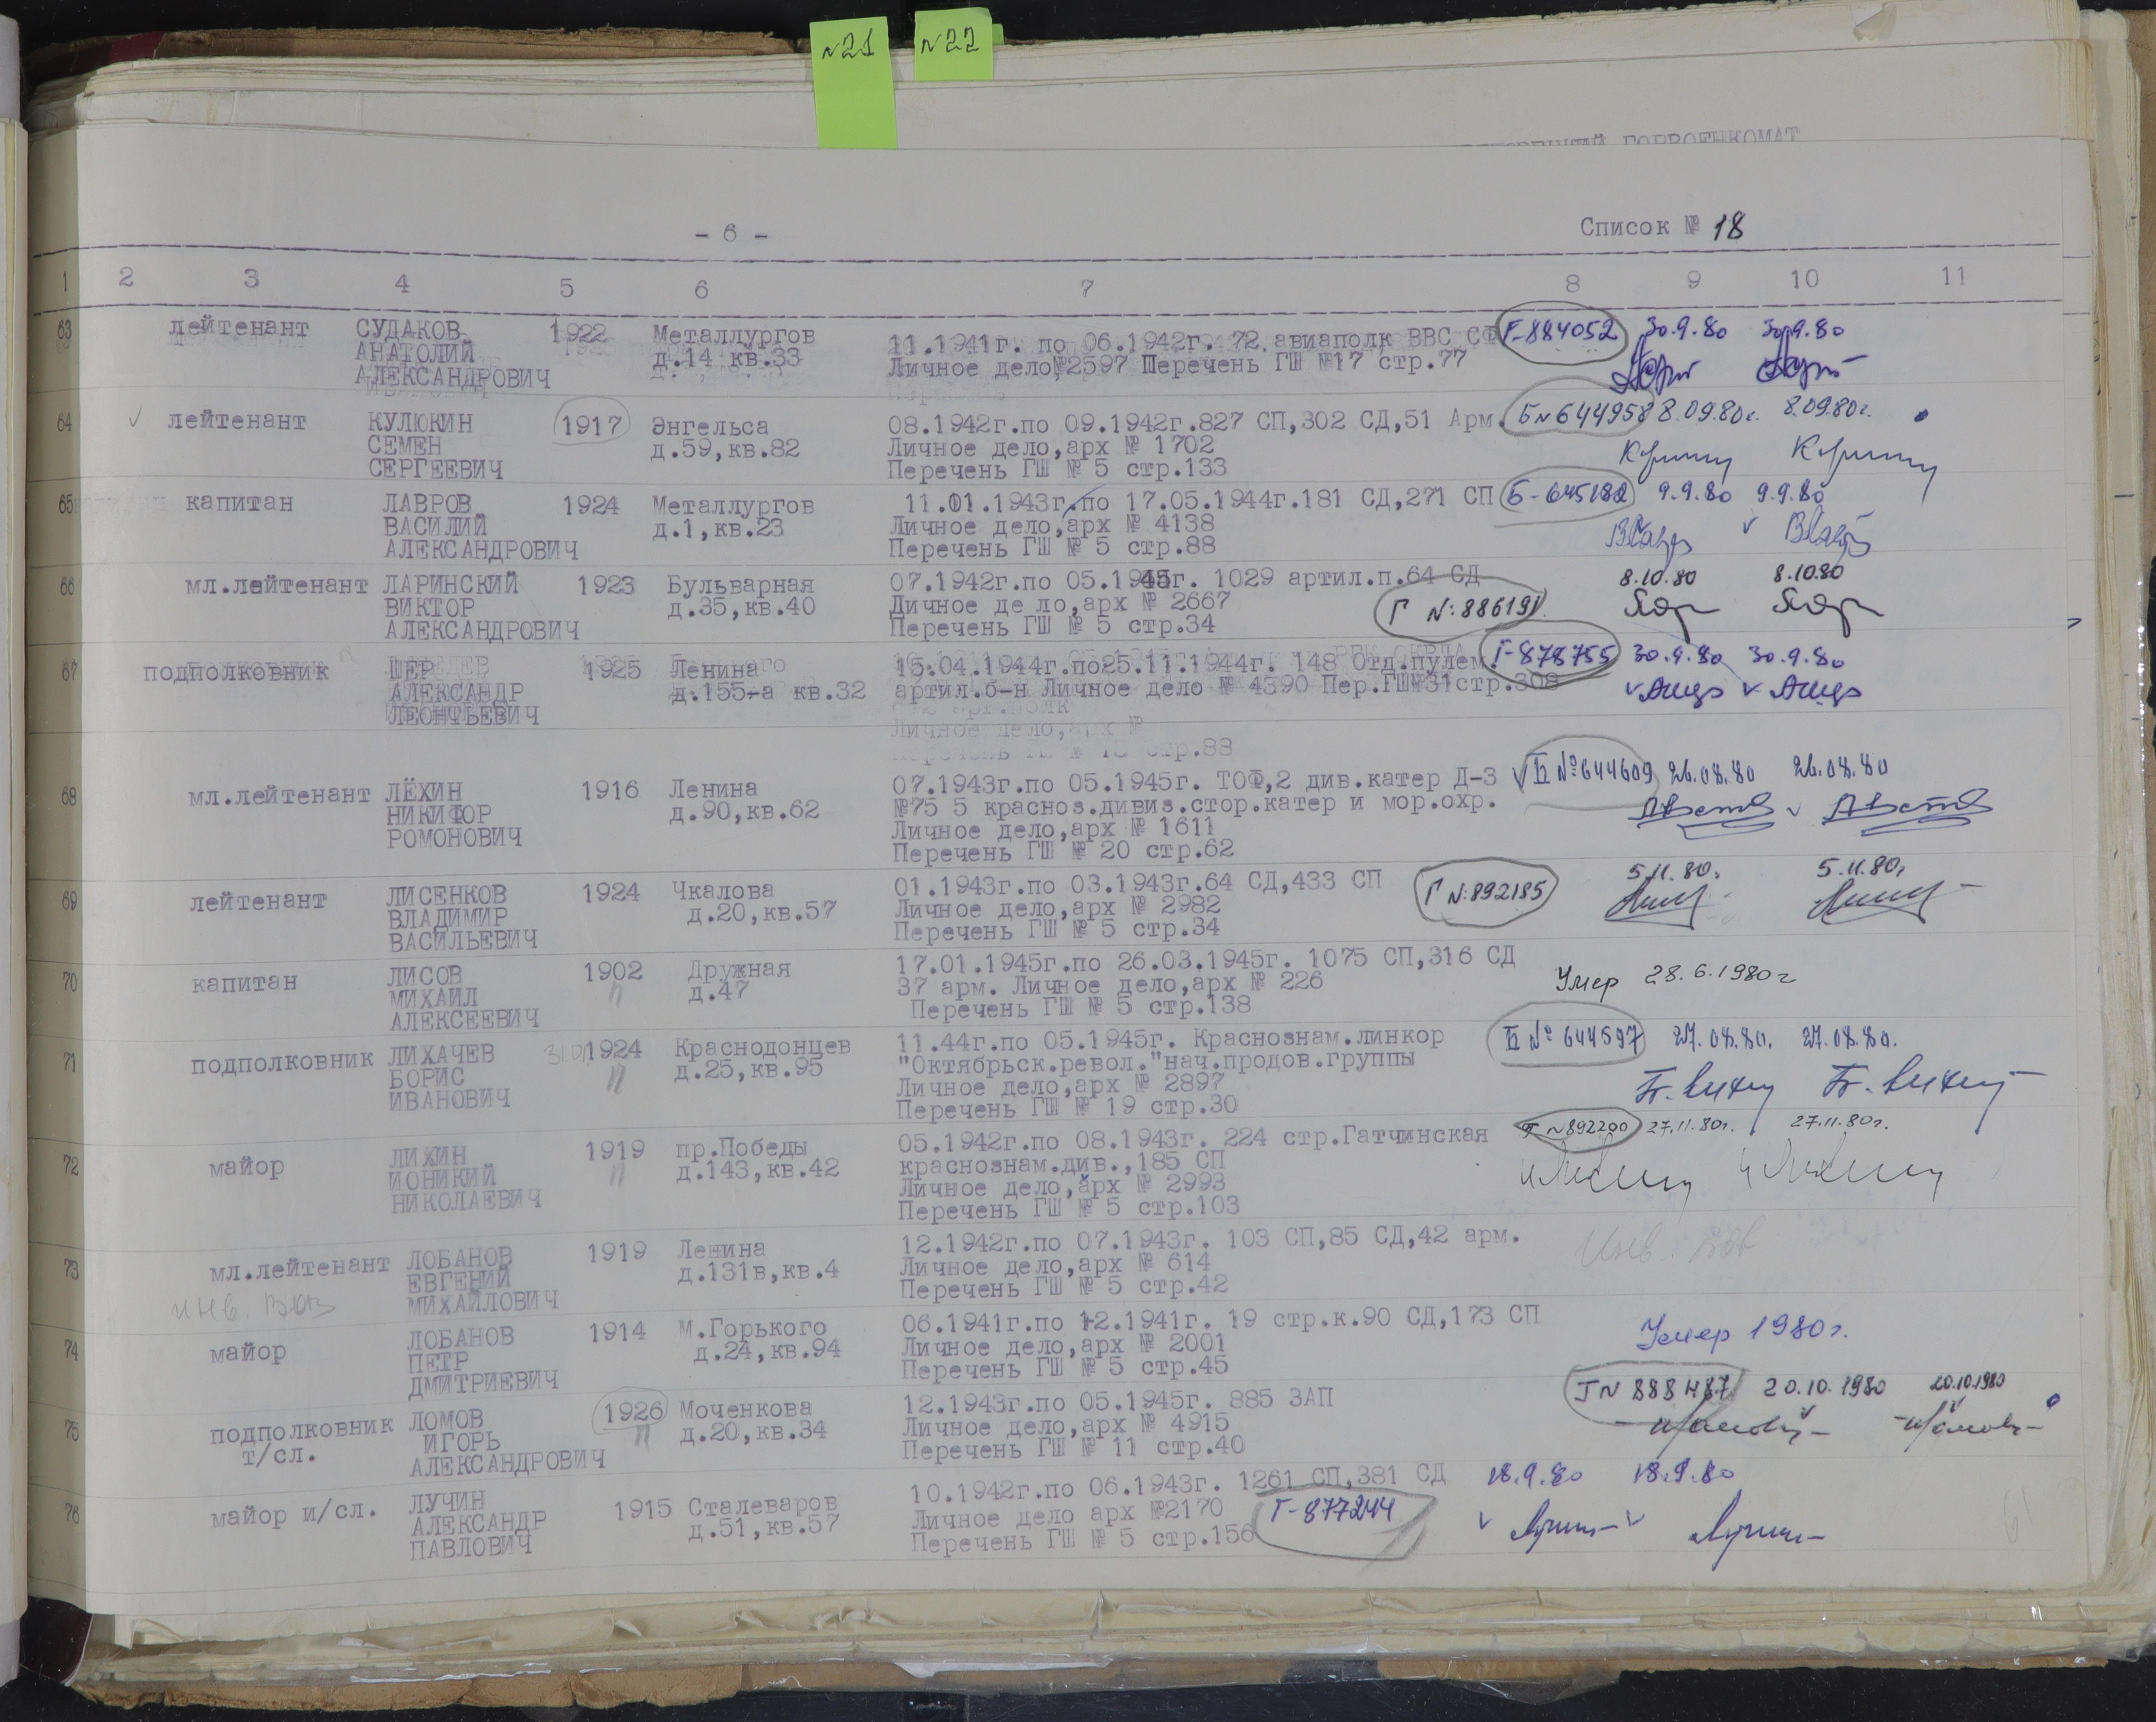 №21 №22
- 6 -
Список № 18
1 2 3 4 5 6 7 8 9 10 11
63 лейтенант СУДАКОВ 1922 Металлургов 11.1941г. по 06.1942г. 72 авиаполк ВВС СФ Г-884052 30.9.80 30.9.80
АНАТОЛИЙ д.14 кв.33 Личное дело,№2597 Перечень ГШ №17 стр.77
АЛЕКСАНДРОВИЧ
64 ✓ лейтенант КУЛЮКИН 1917 Энгельса 08.1942г.по 09.1942г.827 СП,302 СД,51 Арм. Б№644958 8.09.80г. 8.09.80г.
СЕМЕН д.59,кв.82 Личное дело,арх № 1702
СЕРГЕЕВИЧ Перечень ГШ № 5 стр.133
65 капитан ЛАВРОВ 1924 Металлургов 11.01.1943г.по 17.05.1944г.181 СД,271 СП Б-645182 9.9.80 9.9.80
ВАСИЛИЙ д.1,кв.23 Личное дело,арх № 4138
АЛЕКСАНДРОВИЧ Перечень ГШ № 5 стр.88
66 мл.лейтенант ЛАРИНСКИЙ 1923 Бульварная 07.1942г.по 05.1945г. 1029 артил.п.64 СД 8.10.80 8.10.80
ВИКТОР д.35,кв.40 Личное де ло,арх № 2667 Г N:886191
АЛЕКСАНДРОВИЧ Перечень ГШ № 5 стр.34
67 подполковник ШЕР 1925 Ленина 15.04.1944г.по25.11.1944г. 148 Отд.пулем. Г-878755 30.9.80 30.9.80
АЛЕКСАНДР д.155-а кв.32 артил.б-н Личное дело № 4390 Пер.ГШ№31стр.308
ЛЕОНТЬЕВИЧ
Личное дело,арх №
стр.88
68 мл.лейтенант ЛЁХИН 1916 Ленина 07.1943г.по 05.1945г. ТОФ,2 див.катер Д-3 ✓ Б №644609 26.08.80 26.08.80
НИКИФОР д.90,кв.62 №75 5 красноз.дивиз.стор.катер и мор.охр.
РОМОНОВИЧ Личное дело,арх № 1611
Перечень ГШ № 20 стр.62
69 лейтенант ЛИСЕНКОВ 1924 Чкалова 01.1943г.по 03.1943г.64 СД,433 СП Г N:892185 5.11.80. 5.11.80.
ВЛАДИМИР д.20,кв.57 Личное дело,арх № 2982
ВАСИЛЬЕВИЧ Перечень ГШ № 5 стр.34
70 капитан ЛИСОВ 1902 Дружная 17.01.1945г.по 26.03.1945г. 1075 СП,316 СД Умер 28.6.1980г
МИХАИЛ п д.47 37 арм. Личное дело,арх № 226
АЛЕКСЕЕВИЧ Перечень ГШ № 5 стр.138
71 подполковник ЛИХАЧЕВ 1924 Краснодонцев 11.44г.по 05.1945г. Краснознам.линкор Б № 644597 27.08.80. 27.08.80.
БОРИС п д.25,кв.95 "Октябрьск.револ."нач.продов.группы
ИВАНОВИЧ Личное дело,арх № 2897
Перечень ГШ № 19 стр.30
72 майор ЛИХИН 1919 пр.Победы 05.1942г.по 08.1943г. 224 стр.Гатчинская Г №892200 27.11.80г. 27.11.80г.
ИОНИКИЙ п д.143,кв.42 краснознам.див.,185 СП
НИКОЛАЕВИЧ Личное дело,арх № 2993
Перечень ГШ № 5 стр.103
73 мл.лейтенант ЛОБАНОВ 1919 Ленина 12.1942г.по 07.1943г. 103 СП,85 СД,42 арм. Инв. ВОВ
ЕВГЕНИЙ д.131в,кв.4 Личное дело,арх № 614
инв. ВОВ МИХАЙЛОВИЧ Перечень ГШ № 5 стр.42
74 майор ЛОБАНОВ 1914 М.Горького 06.1941г.по 12.1941г. 19 стр.к.90 СД,173 СП Умер 1980г.
ПЕТР д.24,кв.94 Личное дело,арх № 2001
ДМИТРИЕВИЧ Перечень ГШ № 5 стр.45
75 подполковник ЛОМОВ 1926 Моченкова 12.1943г.по 05.1945г. 885 ЗАП ГN 888487 20.10.1980 20.10.1980
т/сл. ИГОРЬ п д.20,кв.34 Личное дело,арх № 4915
АЛЕКСАНДРОВИЧ Перечень ГШ № 11 стр.40
76 майор и/сл. ЛУЧИН 1915 Сталеваров 10.1942г.по 06.1943г. 1261 СП,381 СД 18.9.80 18.9.80
АЛЕКСАНДР д.51,кв.57 Личное дело арх №2170 Г-877244
ПАВЛОВИЧ Перечень ГШ № 5 стр.156